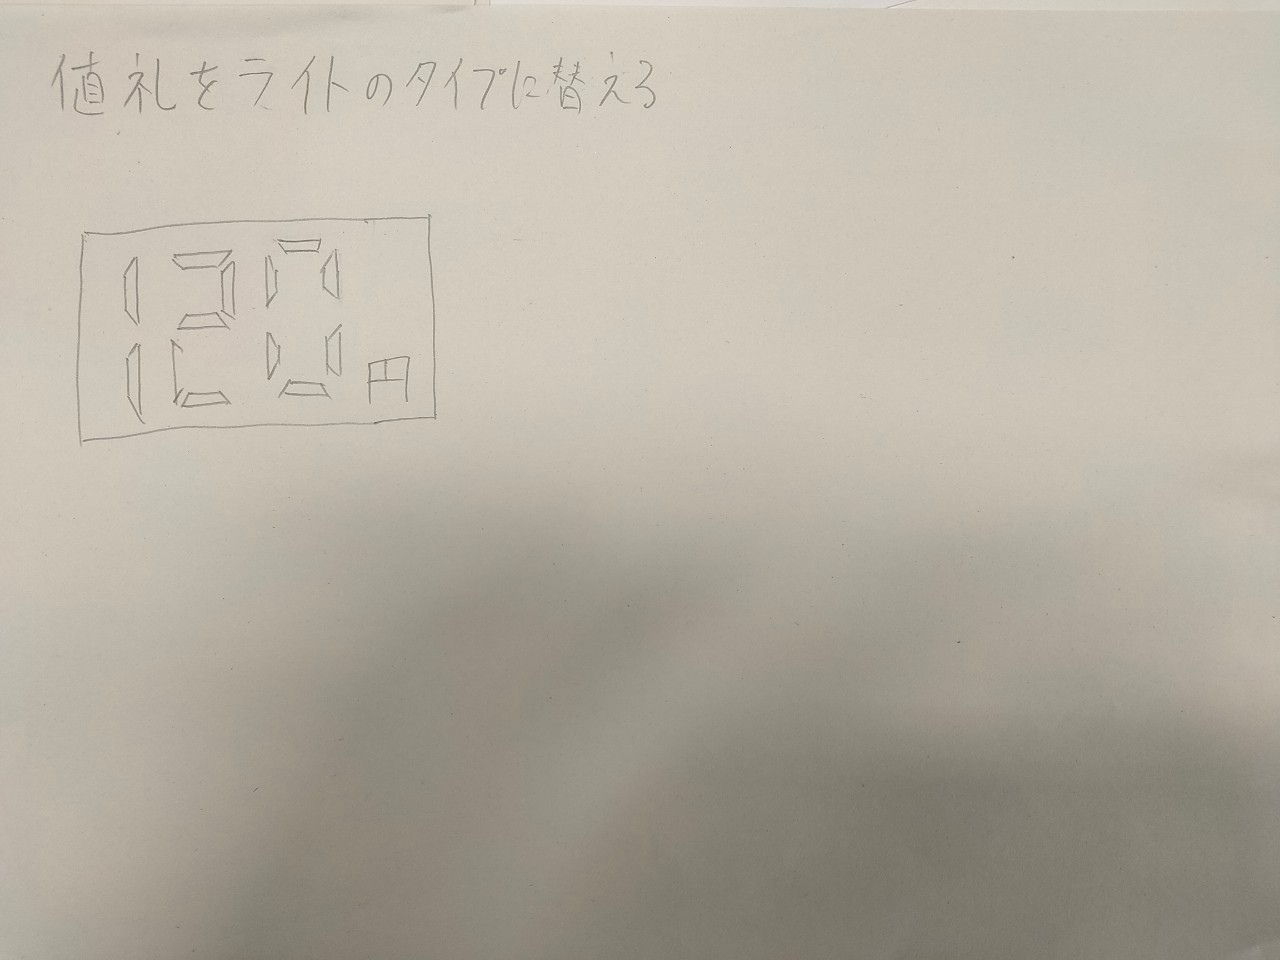 値札をライトのタイプに替えろ
120円